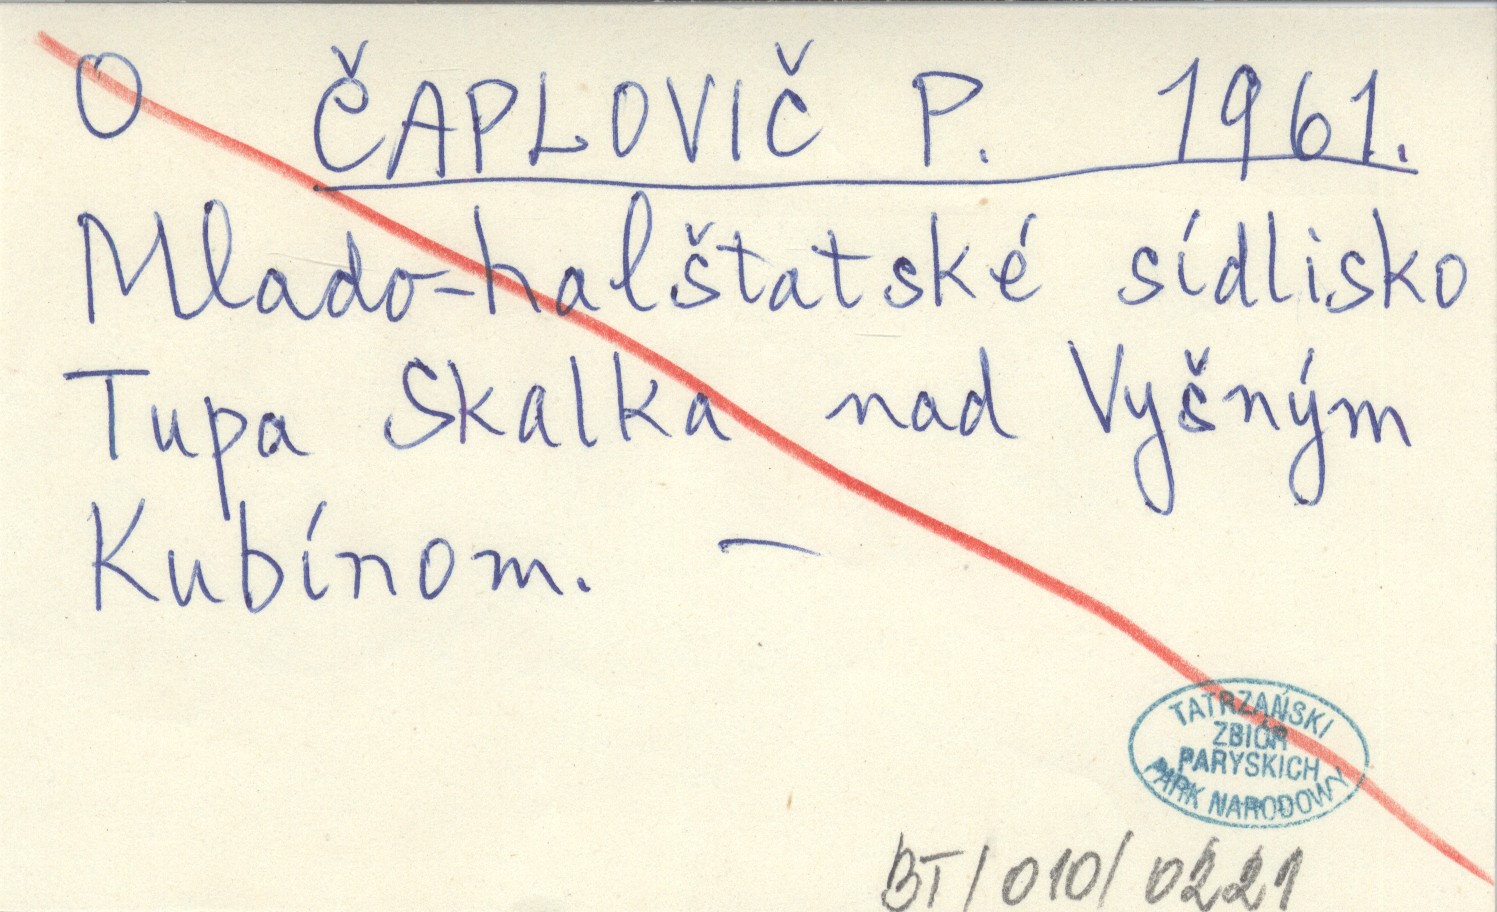 O ČAPLOVIČ P. 1961.
Mlado-halštatské sídlisko
Tupa Skalka nad Vyšným
Kubínom. —
TATRZAŃSKI
ZBIÓR
PARYSKICH
PARK NARODOWY
BT/010/0221